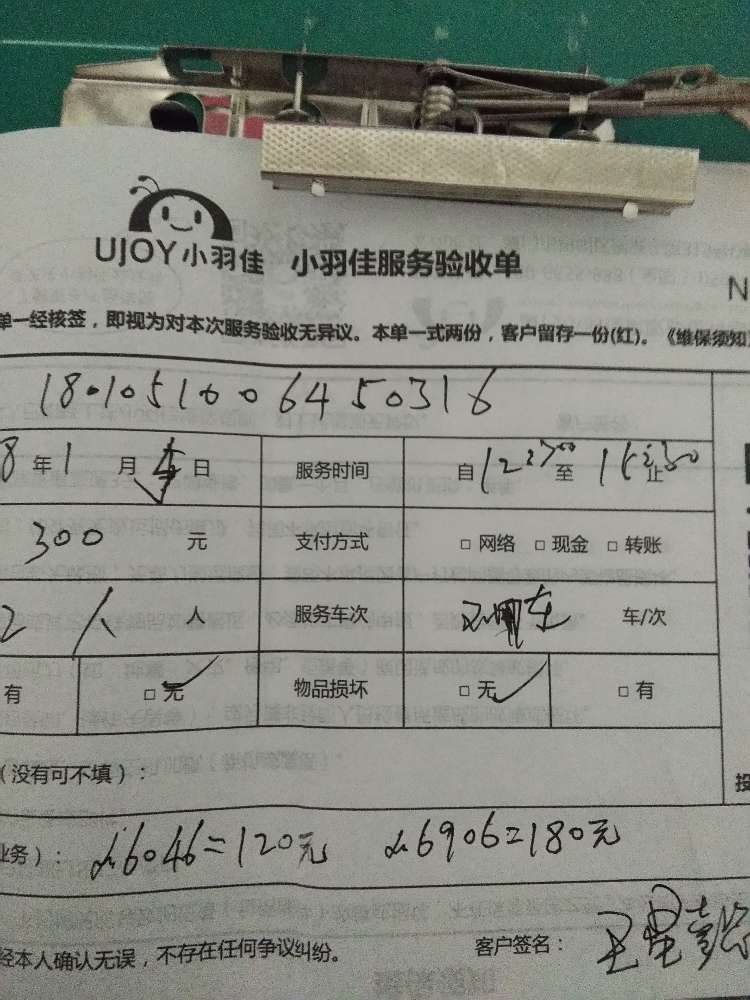 UJOY小羽佳 小羽佳服务验收单
N
单一经核签，即视为对本次服务验收无异议。本单一式两份，客户留存一份(红)。《维保须知》
18010516006450316
8 年 1 月 日 服务时间 自 12 至 止
300 元 支付方式 □ 网络 □ 现金 □ 转账
2人 人 服务车次 车/次
有 □ 无 物品损坏 □ 无 □ 有
（没有可不填）：
投
业务）： 6046=120元 6906=180元
经本人确认无误，不存在任何争议纠纷。 客户签名：